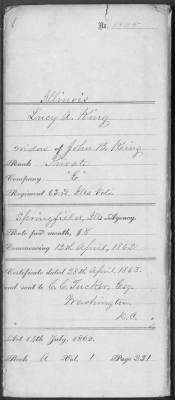 No.
Illinois
Lucy A. King
widow of John B. King
Rank Private
Company "C"
Regiment 63rd Ills Vols
Springfield, Ills Agency.
Rate per month, $8
Commencing 12th April, 1862
Certificate dated 28th April 1863.
and sent to C. C. Tucker, Esq
Washington
D.C.
Act 14th July, 1862.
Book A Vol. 1 Page 231